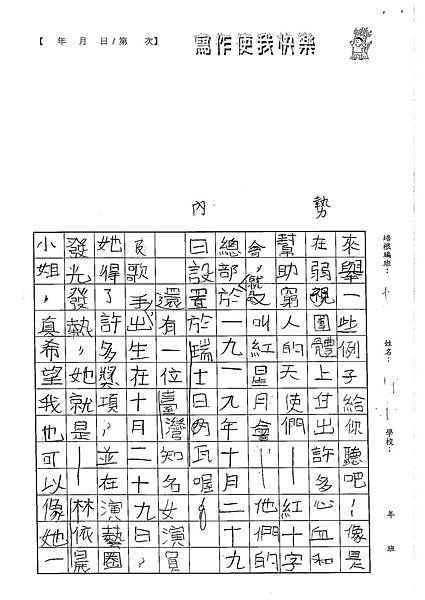 【 年 月 日/第 次】
寫作使我快樂
培根編班：
姓名：
學校：
年 班
勢
內
來舉一些例子給你聽吧！像是
在弱視團體上付出許多心血和
幫助窮人的天使們——紅十字
會，就又叫紅星月會——他們的
總部於一九一九年十月二十九
日設置於瑞士日內瓦喔！
還有一位臺灣知名女演員
及歌手，出生在十月二十九日，
她得了許多獎項，並在演藝圈
發光發熱，她就是——林依晨
小姐，真希望我也可以像她一